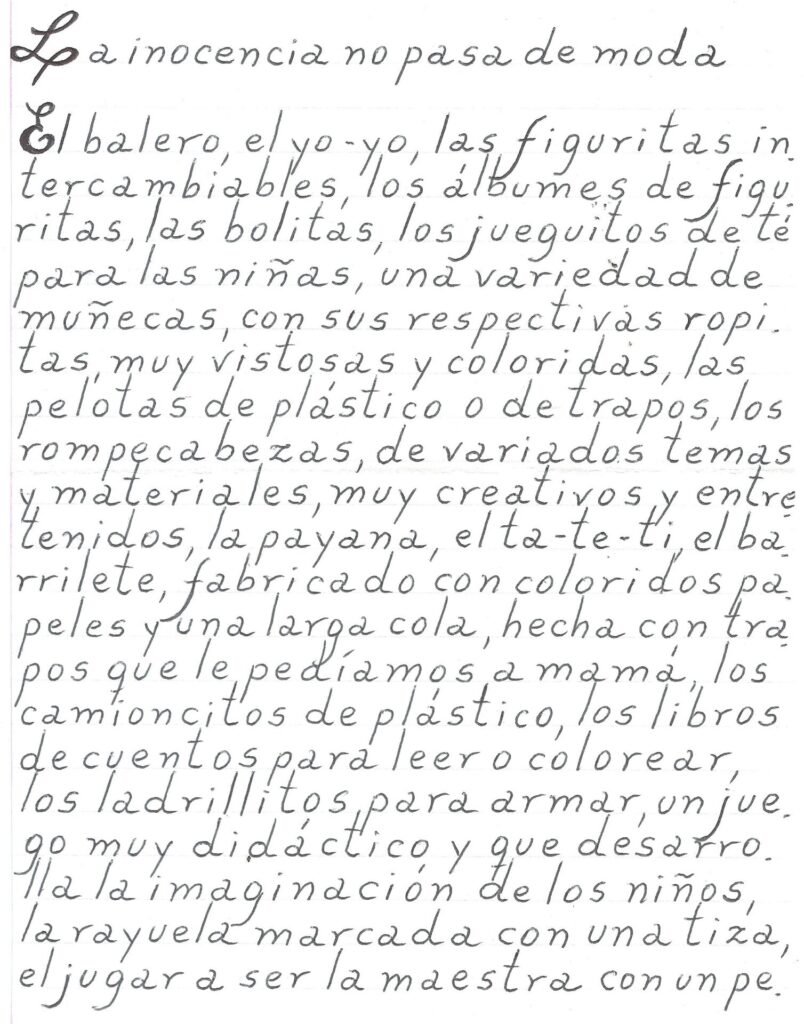 La inocencia no pasa de moda
El balero, el yo-yo, las figuritas in.
tercambiables, los álbumes de figu.
ritas, las bolitas, los jueguitos de té
para las niñas, una variedad de
muñecas, con sus respectivas ropi.
tas, muy vistosas y coloridas, las
pelotas de plástico o de trapos, los
rompecabezas, de variados temas
y materiales, muy creativos y entre.
tenidos, la payana, el ta-te-ti, el ba.
rrilete, fabricado con coloridos pa.
peles y una larga cola, hecha con tra.
pos que le pedíamos a mamá, los
camioncitos de plástico, los libros
de cuentos para leer o colorear,
los ladrillitos para armar, un jue.
go muy didáctico y que desarro.
lla la imaginación de los niños,
la rayuela marcada con una tiza,
el jugar a ser la maestra con un pe.